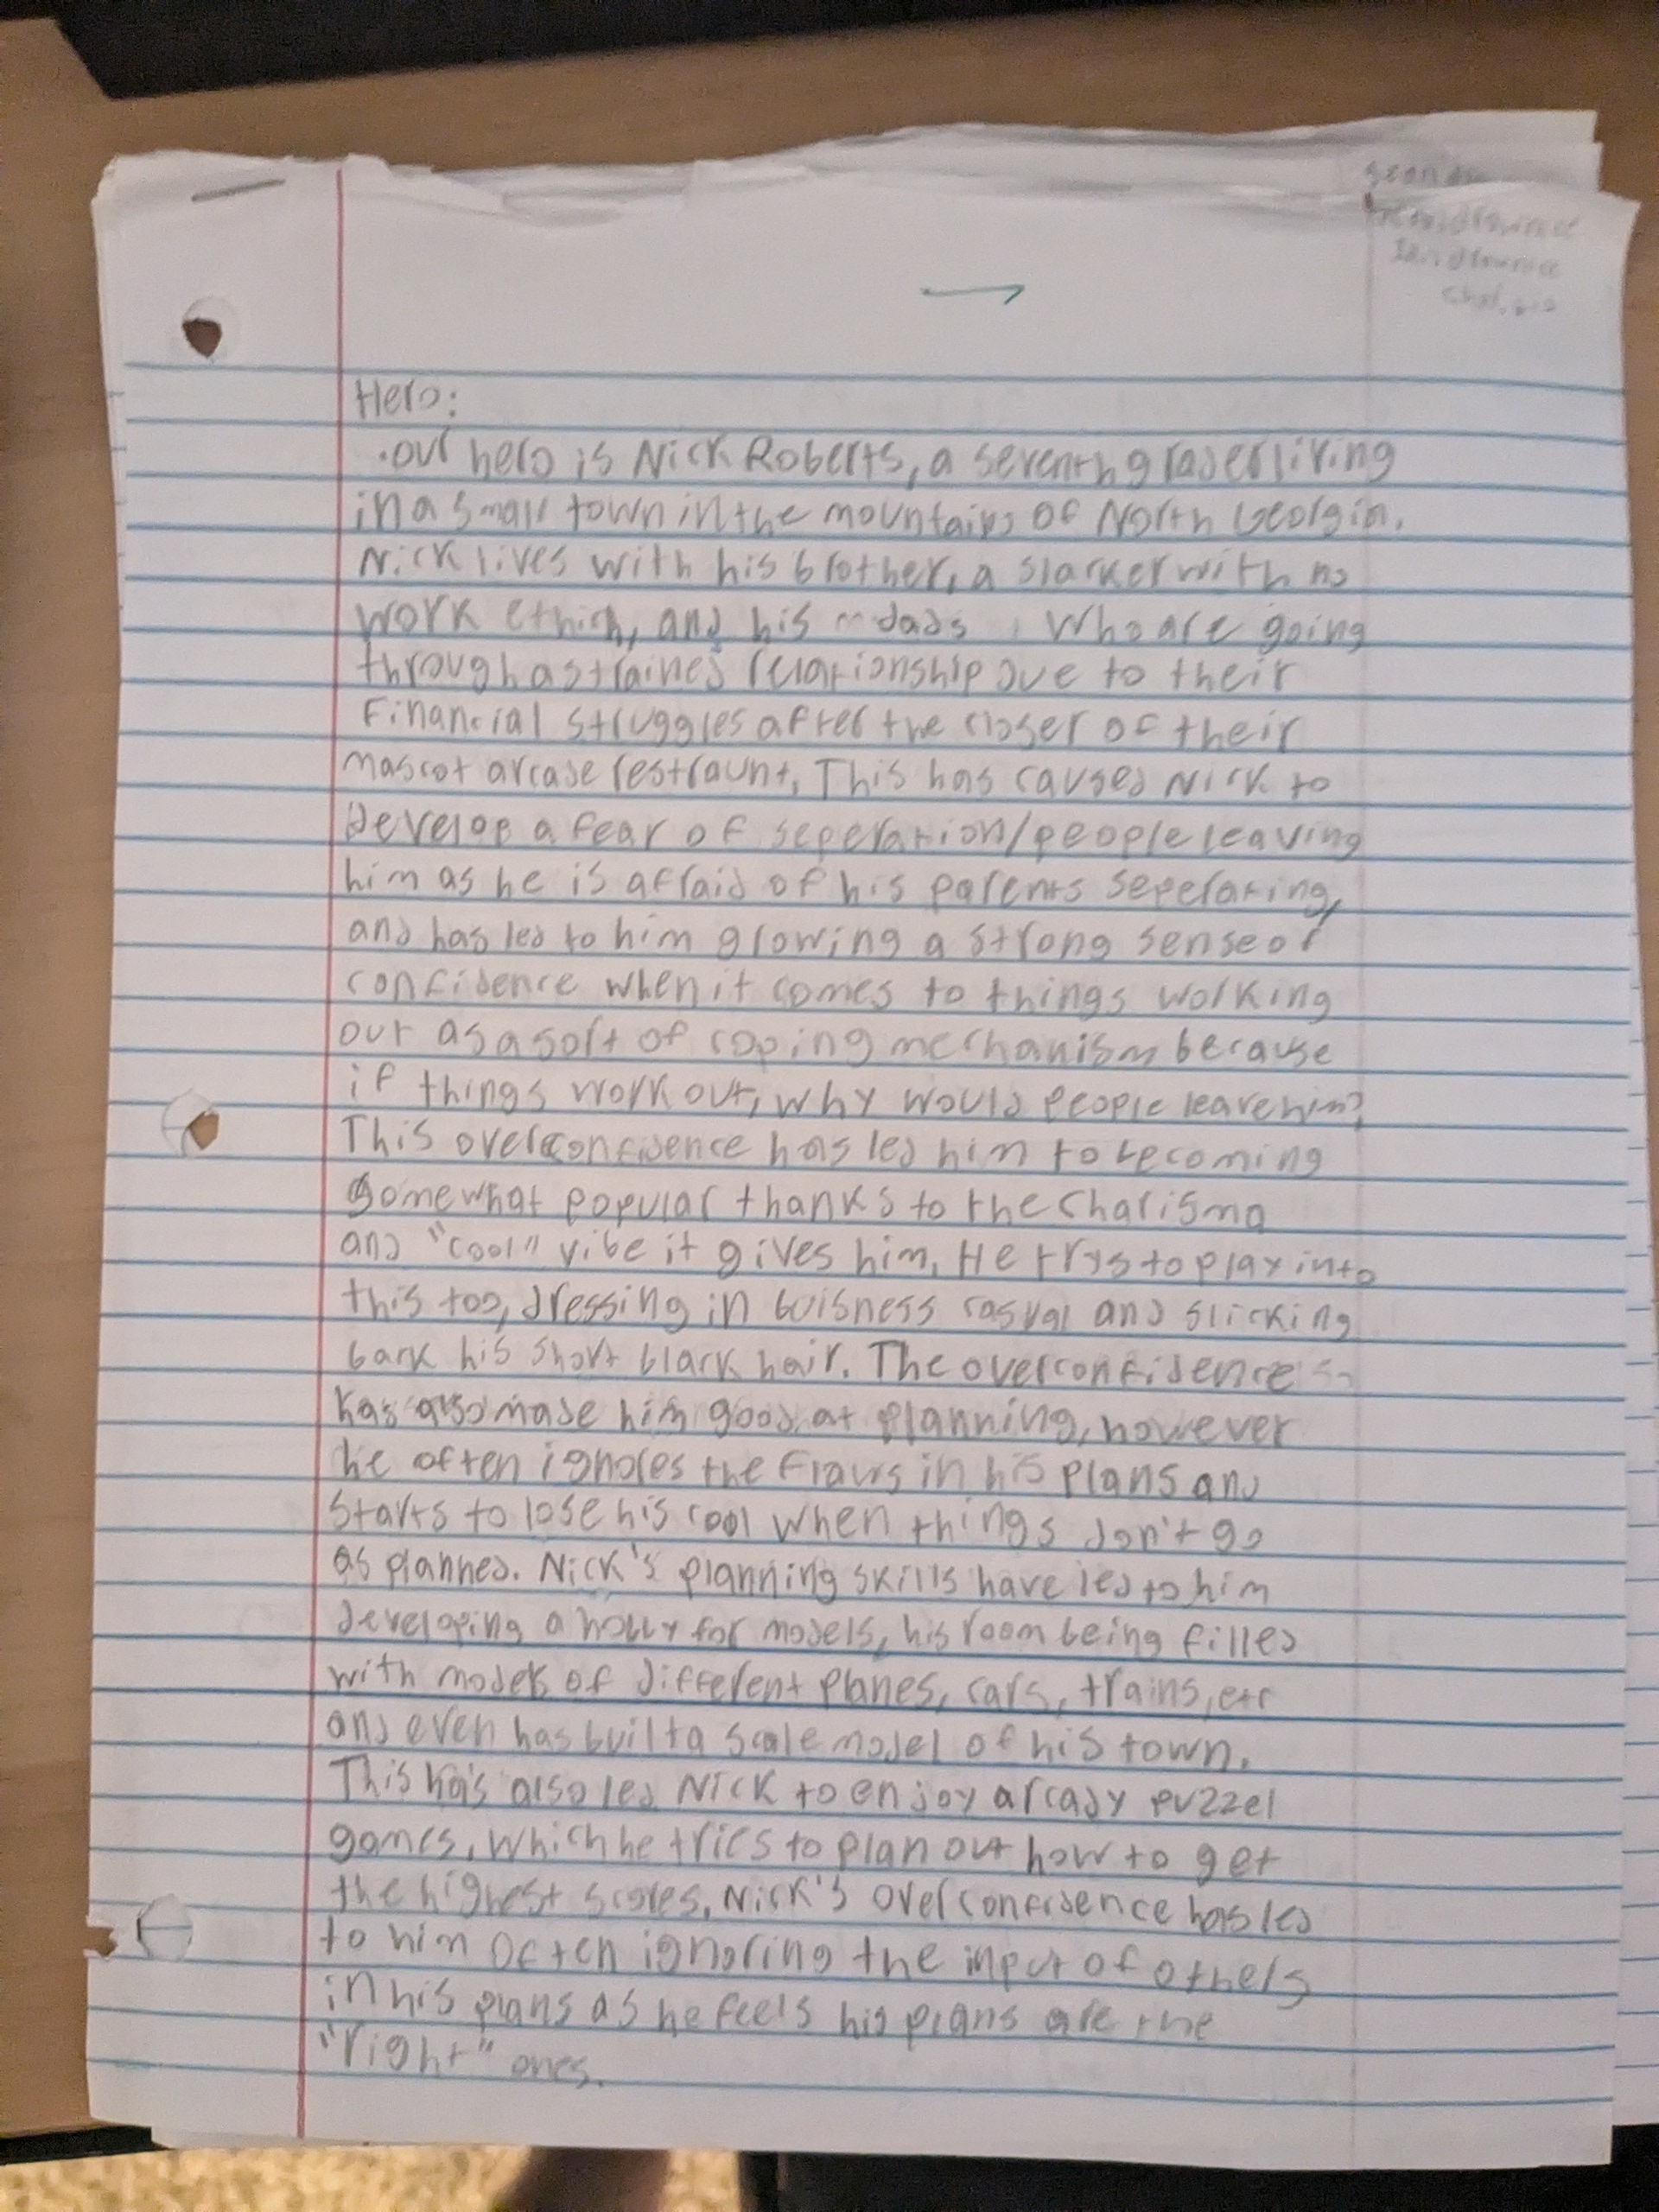 Hero:
·our hero is Nick Roberts, a seventh grader living
in a small town in the mountains of North Georgia.
Nick lives with his brother, a slacker with no
work ethich, and his dads, who are going
through a strained relationship due to their
financial struggles after the closer of their
mascot arcade restraunt. This has caused Nick to
develop a fear of seperation/people leaving
him as he is afraid of his parents seperating,
and has led to him growing a strong sense of
confidence when it comes to things working
out as a sort of coping mechanism because
if things work out, why would people leave him?
This overconfidence has led him to becoming
somewhat popular thanks to the charisma
and "cool" vibe it gives him. He trys to play into
this too, dressing in buisness casual and slicking
back his short black hair. The overconfidence
has also made him good at planning, however
he often ignores the flaws in his plans and
starts to lose his cool when things don't go
as planned. Nick's planning skills have led to him
developing a hobby for models, his room being filled
with models of different planes, cars, trains, etc
and even has built a scale model of his town.
This has also led Nick to enjoy arcady puzzel
games, which he tries to plan out how to get
the highest scores. Nick's overconfidence has led
to him often ignoring the input of others
in his plans as he feels his plans are the
"right" ones.